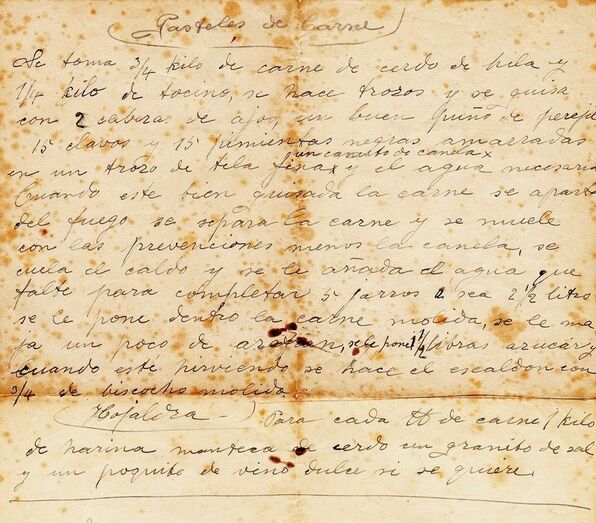 Pasteles de Carne
Se toma 3/4 kilo de carne de cerdo de hila y
1/4 kilo de tocino, se hace trozos y se guisa
con 2 caberas de ajos, un buen puño de perejil
15 clavos y 15 pimientas negras, amarradas
un canuto de canela x
en un trozo de tela fina x y el agua necesaria
Cuando este bien guisada la carne se aparta
del fuego se separa la carne y se muele
con las prevenciones menos la canela, se
cuela el caldo y se le añada el agua que
falte para completar 5 jarros o sea 2 1/2 litro
se le pone dentro la carne molida, se le ma
ja un poco de azafran, se le pone 1 1/2 libras azucar y
cuando este hirviendo se hace el escaldon con
3/4 de biscocho molido.
Hojaldra - Para cada lb de carne 1 kilo
de harina manteca de cerdo un granito de sal
y un poquito de vino dulce si se quiere.